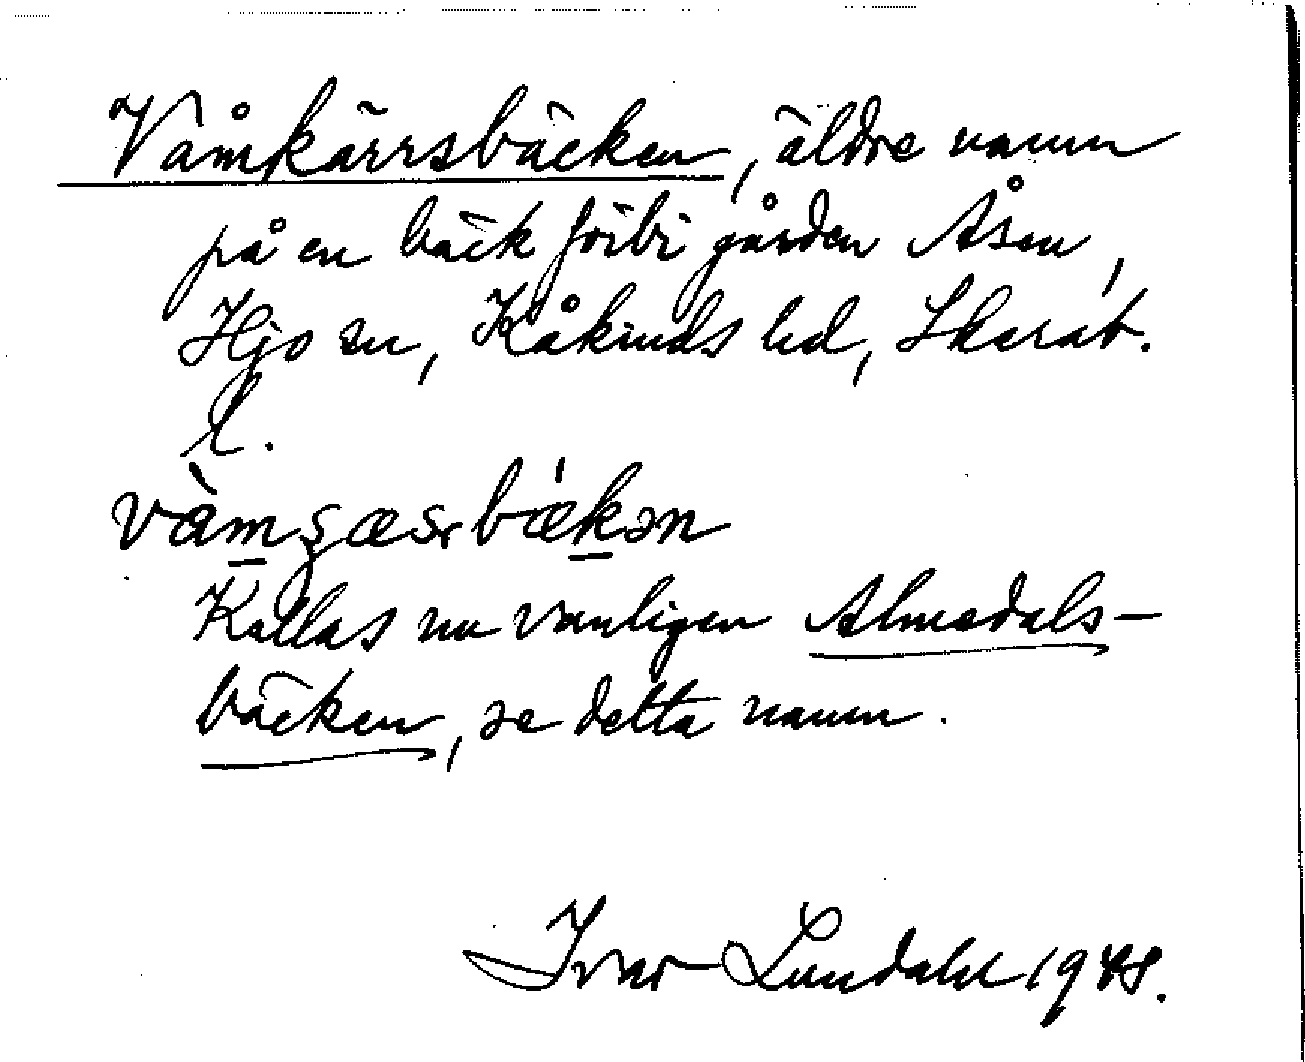 Våmkärrsbäcken, äldre namn
på en bäck förbi gården Åsen,
Hjo sn, Kåkinds hd, Skarab.
l.
vàmçæsrbǽkən
Kallas nu vanligen Almedals-
bäcken, se detta namn.
Ivar Lundahl 1948.